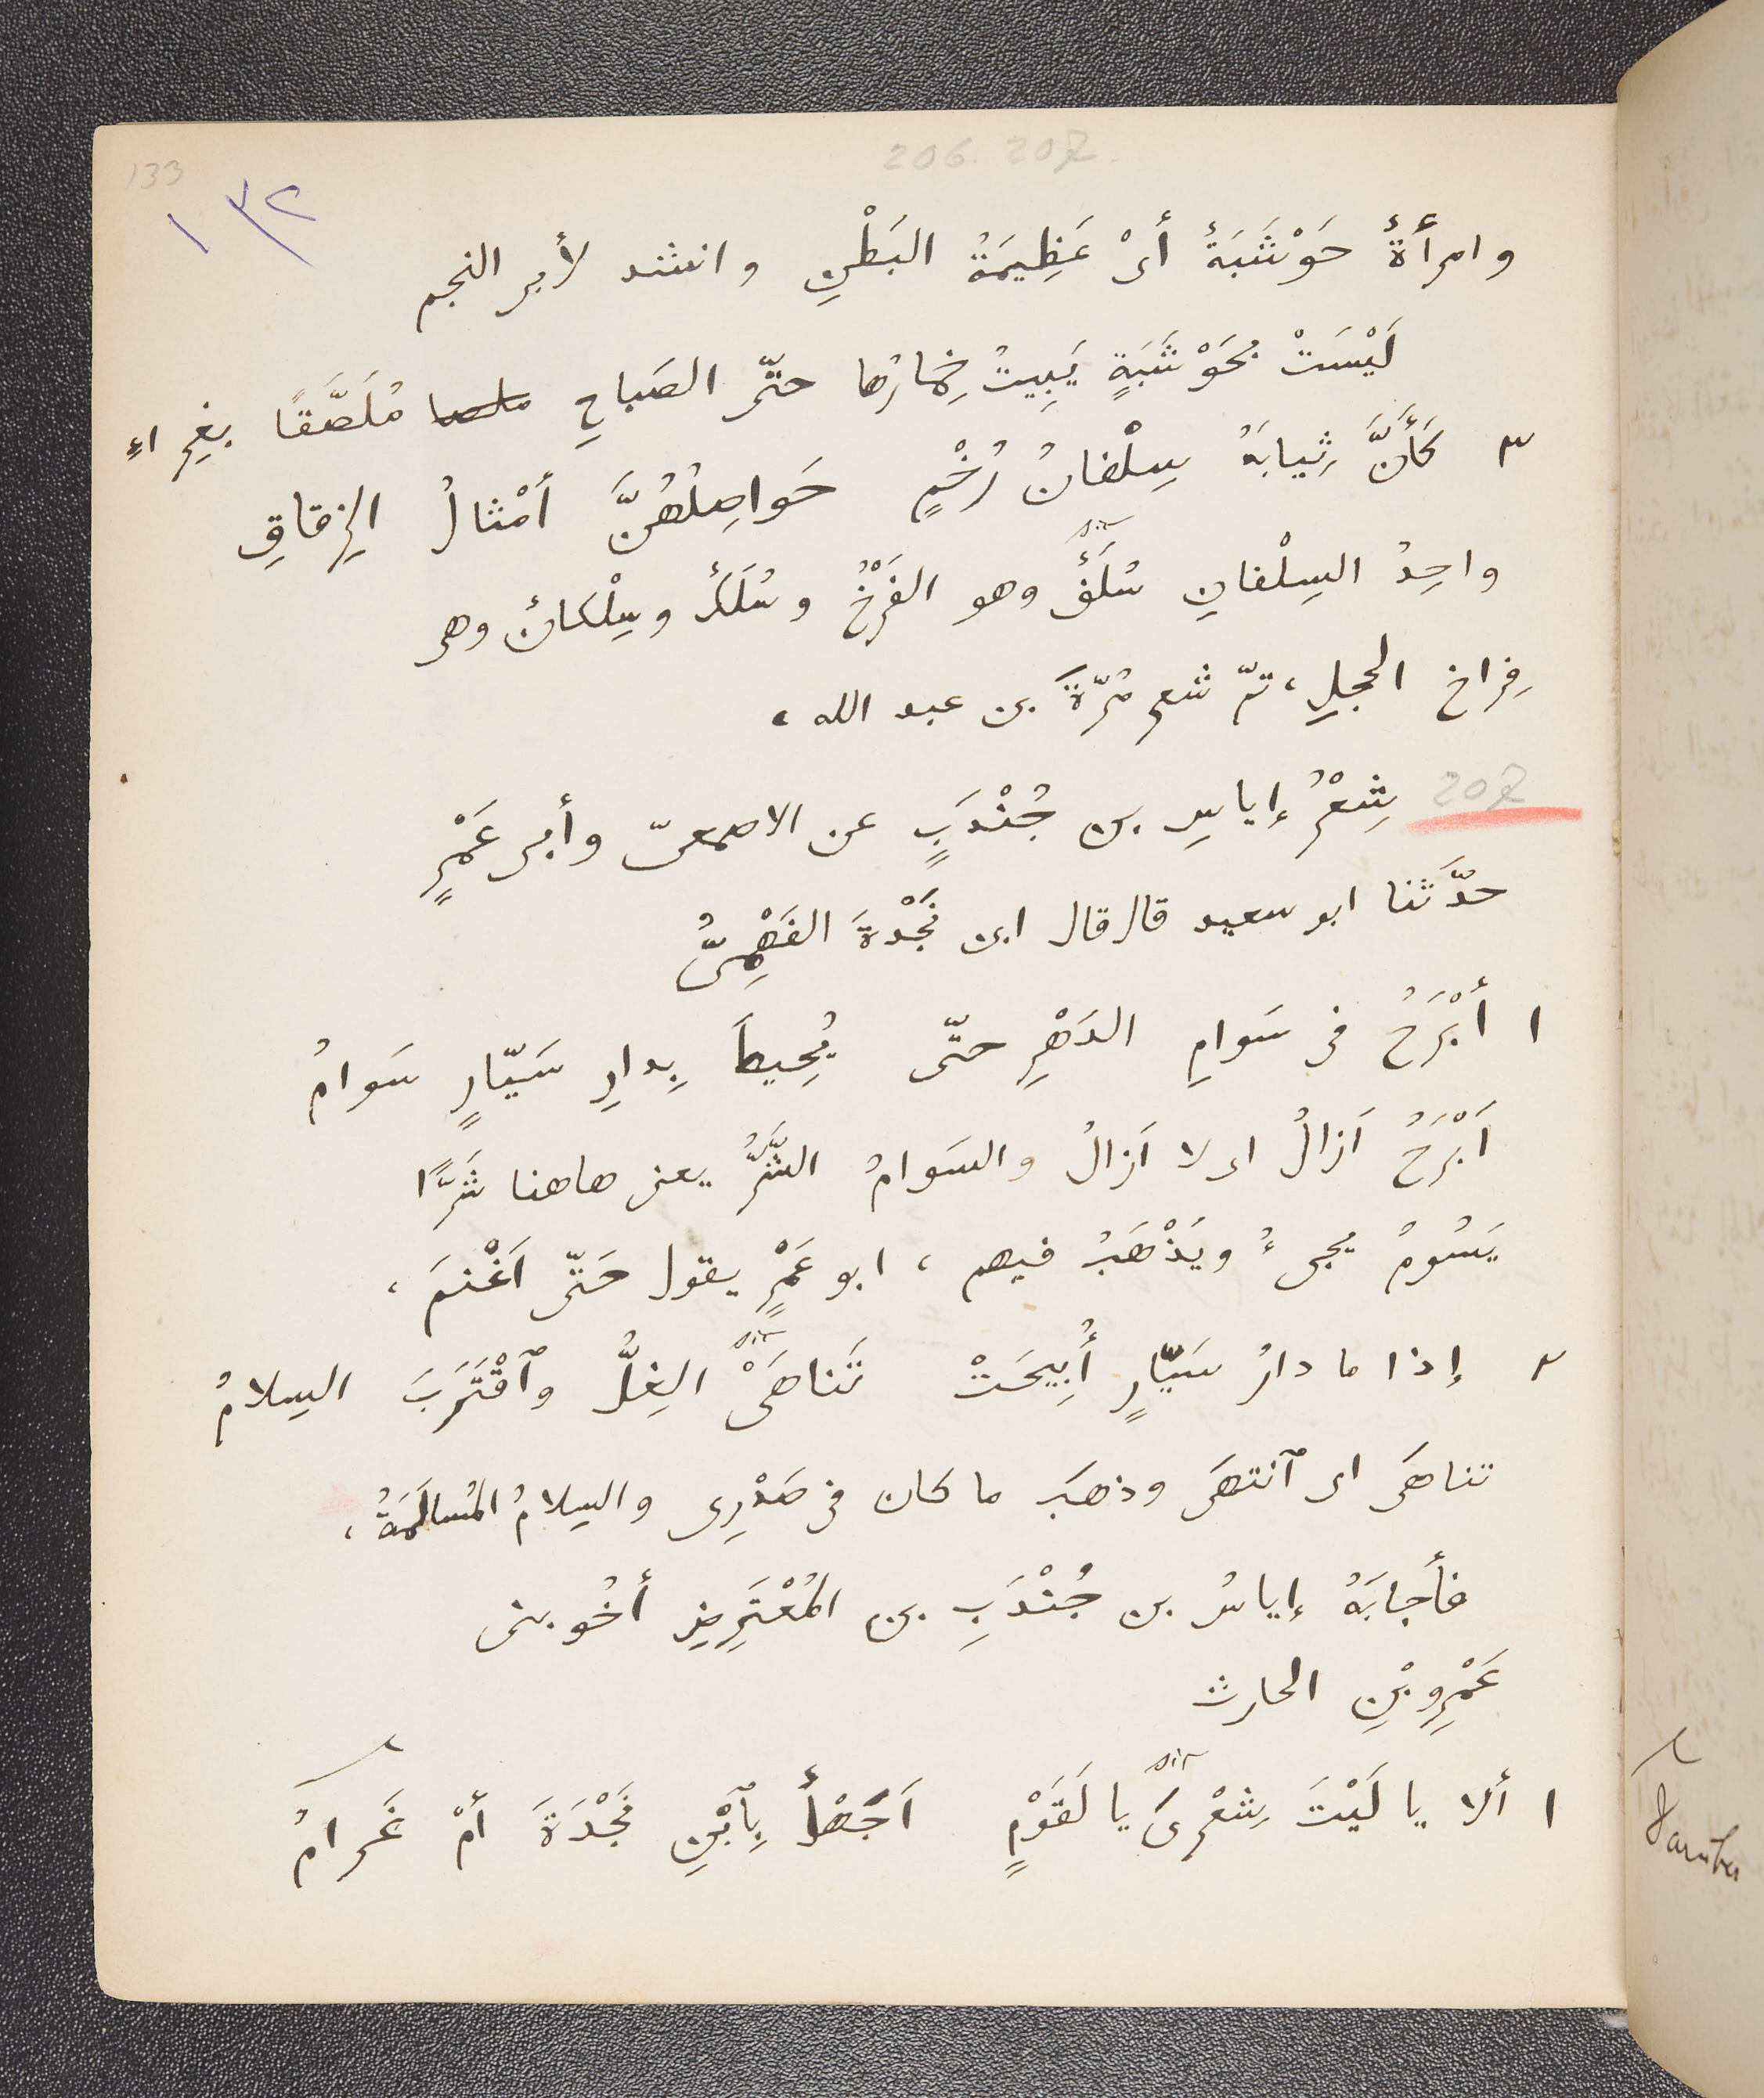 206. 207.
133
١٣٢
وامرأةٌ حَوْشَبَةٌ أىْ عَظِيمَةُ البَطْنِ وانشد لأبى النجم
لَيْسَتْ بحَوْشَبَةٍ يَبِيتُ خِمارُها حتّى الصَباحِ مُلَصَّقًا بغِراءِ
٣ كَأَنَّ ثِيابَهُ سِلْفانُ رُخْمٍ حَواصِلُهُنَّ أمْثالُ الزِقاقِ
واحِدُ السِلْفانِ سُلَفٌ وهو الفَرْخُ وسُلَكٌ وسِلْكانٌ وهى
فِراخ الحجلِ، تمّ شعر مُرّةَ بن عبد الله،
207 شِعْرُ إياسِ بن جُنْدَبٍ عن الاصمعىّ وأبى عَمْرٍ
حدَّثنا ابو سعيد قال قال ابن نَجْدةَ الفَهْمِىُّ
١ أبْرَحُ فى سَوامِ الدَهْرِ حتّى يُحِيطَ بِدارِ سَيّارٍ سَوامُ
اَبْرَحُ اَزالُ اى لا اَزالُ والسَوامُ الشَّرُّ يعنى هاهنا شَرًّا
يَسُومُ يجىءُ ويَذْهَبُ فيهم، ابو عَمْرٍ يقول حَتّى اَغْنمَ،
٢ إذا ما دارُ سَيّارٍ أُبِيحَتْ تَناهَىْ الغِلُّ وٱقْتَرَبَ السِلامُ
تناهَى اى ٱنتهَى وذهَبَ ما كان فى صَدْرِى والسِلامُ المُسالَمَةُ،
فأجابَهُ إياسُ بن جُنْدَبِ بن المُعْتَرِضِ أخُو بنى
عَمْرِو بْنِ الحارث
١ ألا يا لَيْتَ شِعْرِىَ يا لَقَوْمٍ اَجَهْلٌ بِٱبْنِ نَجْدَةَ أمْ غَرامُ